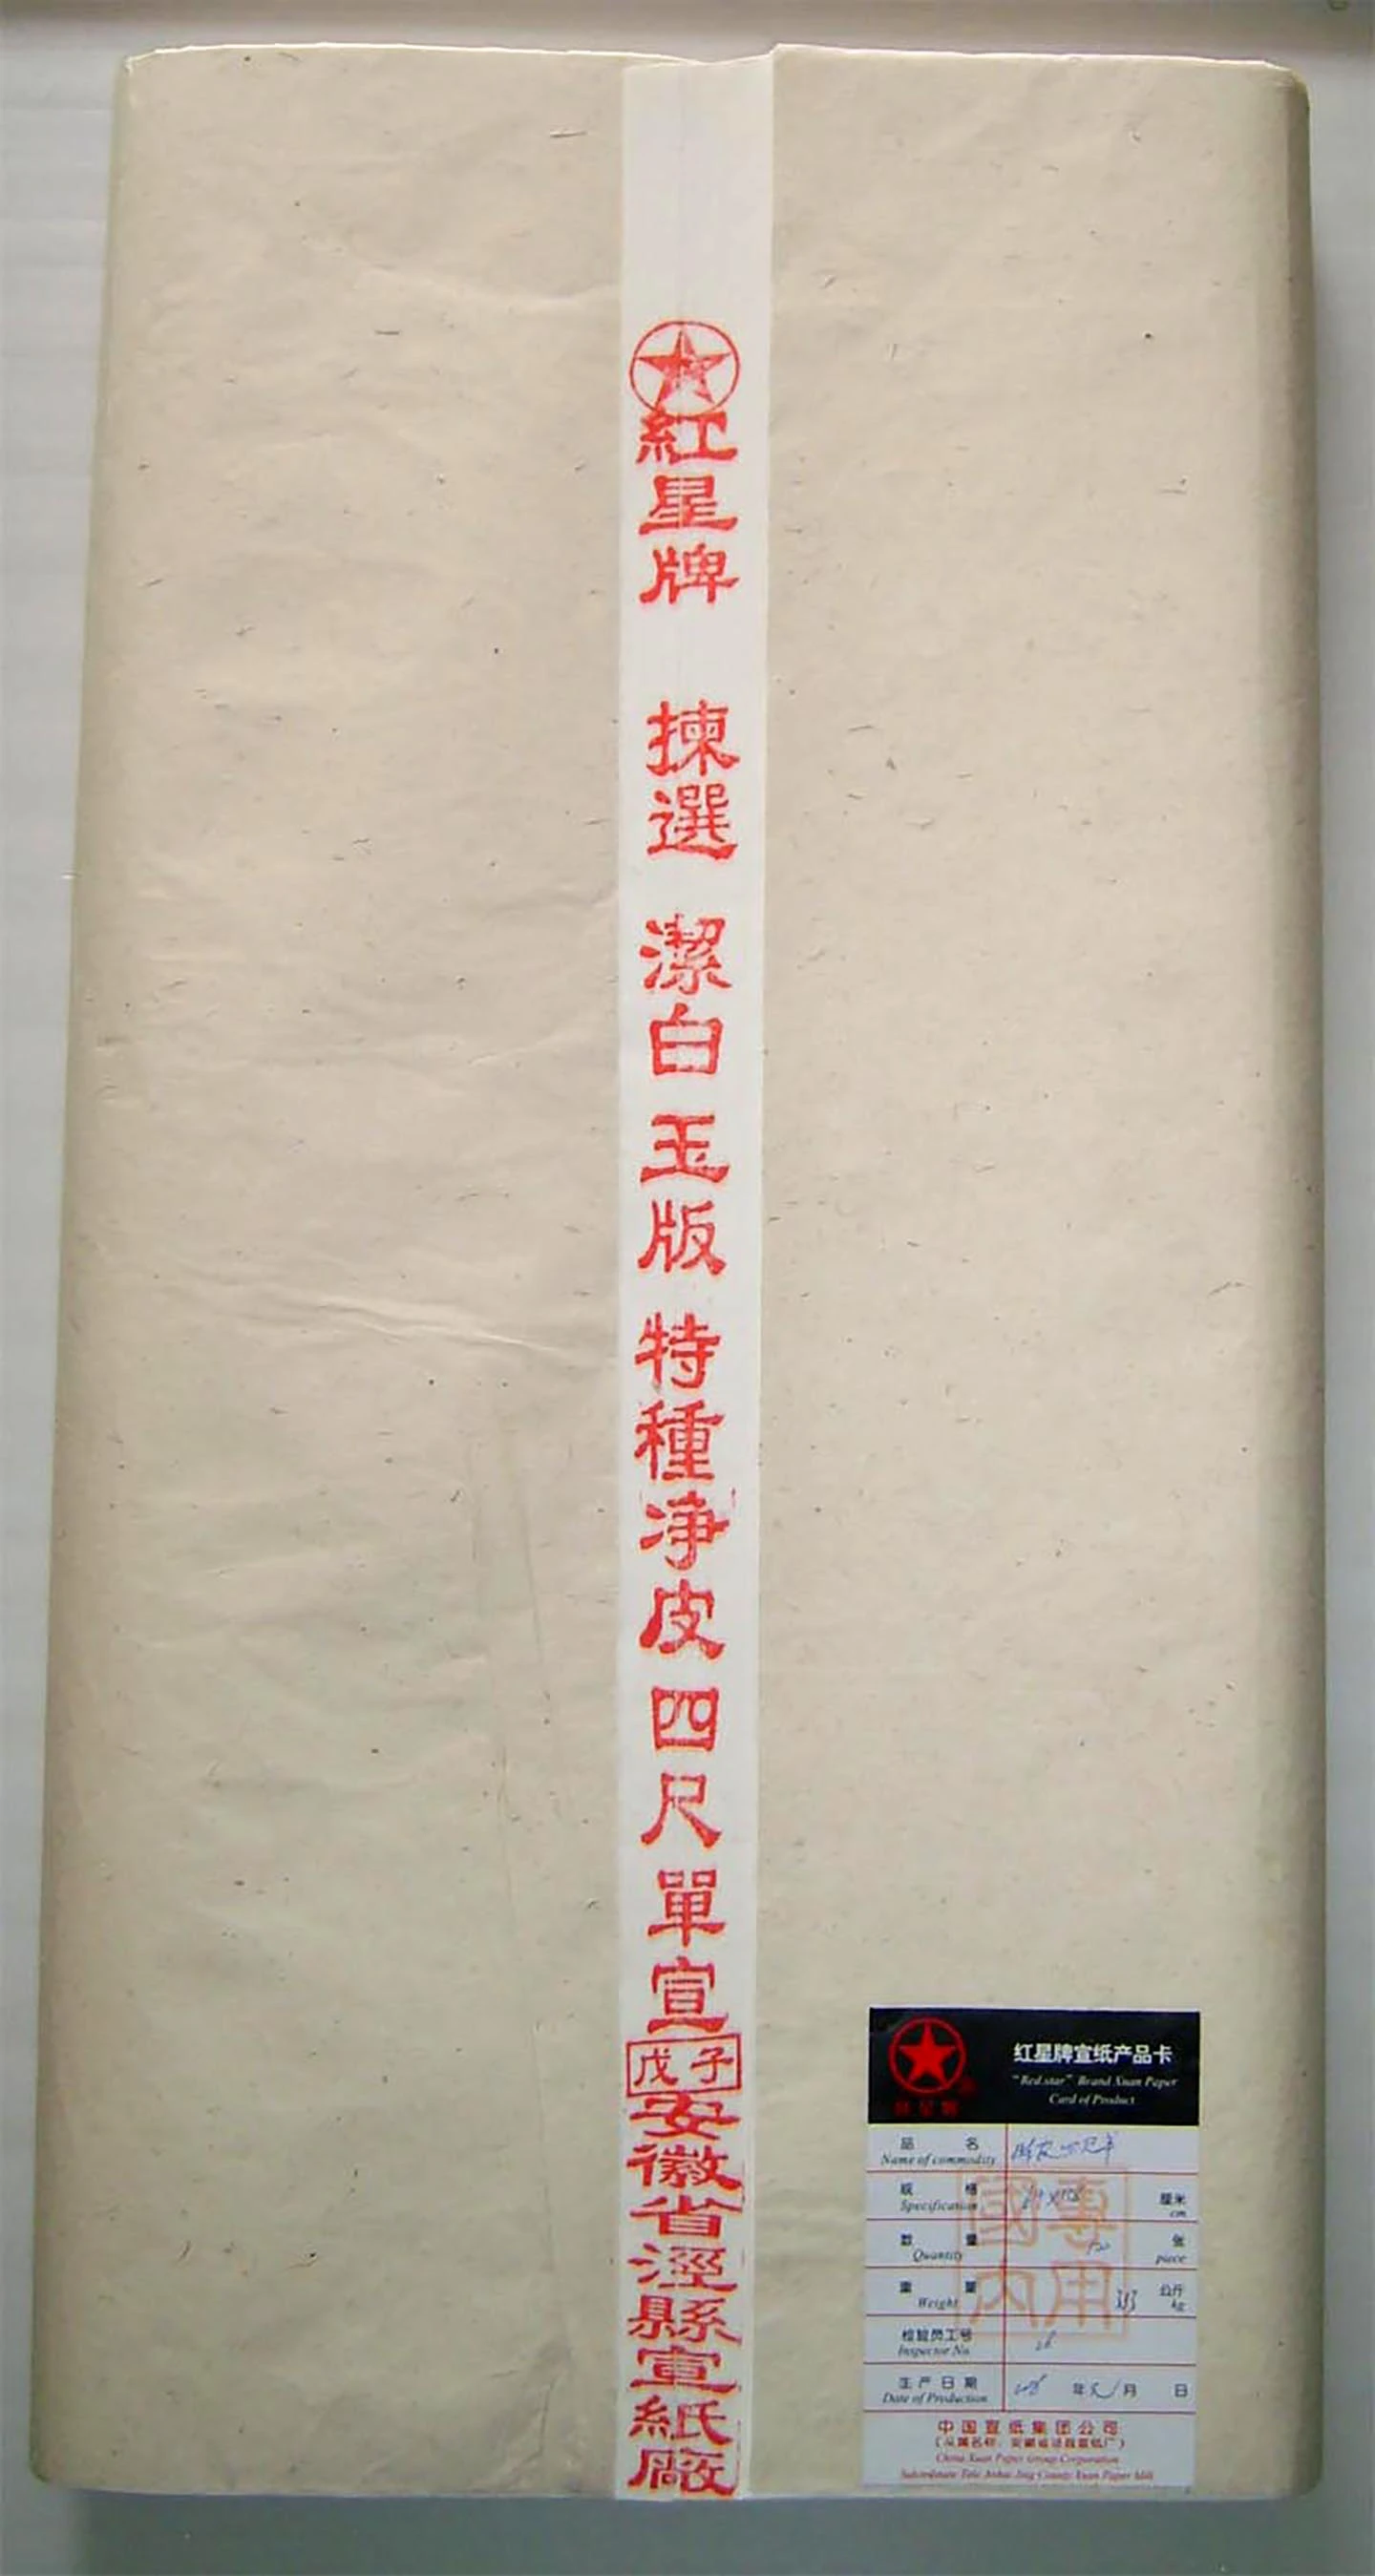 紅星牌 揀選 潔白 玉版 特種净皮 四尺 單宣
戊子
安徽省涇縣宣紙廠
红星牌宣纸产品卡
"Red star" Brand Xuan Paper
Card of Product
品名
Name of commodity
规格 厘米
Specification cm
數量 张
Quantity piece
重量 公斤
Weight kg
检验员工号
Inspector No
生产日期 年 月 日
Date of Production
國內專用
中国宣纸集团公司
China Xuan Paper Group Corporation